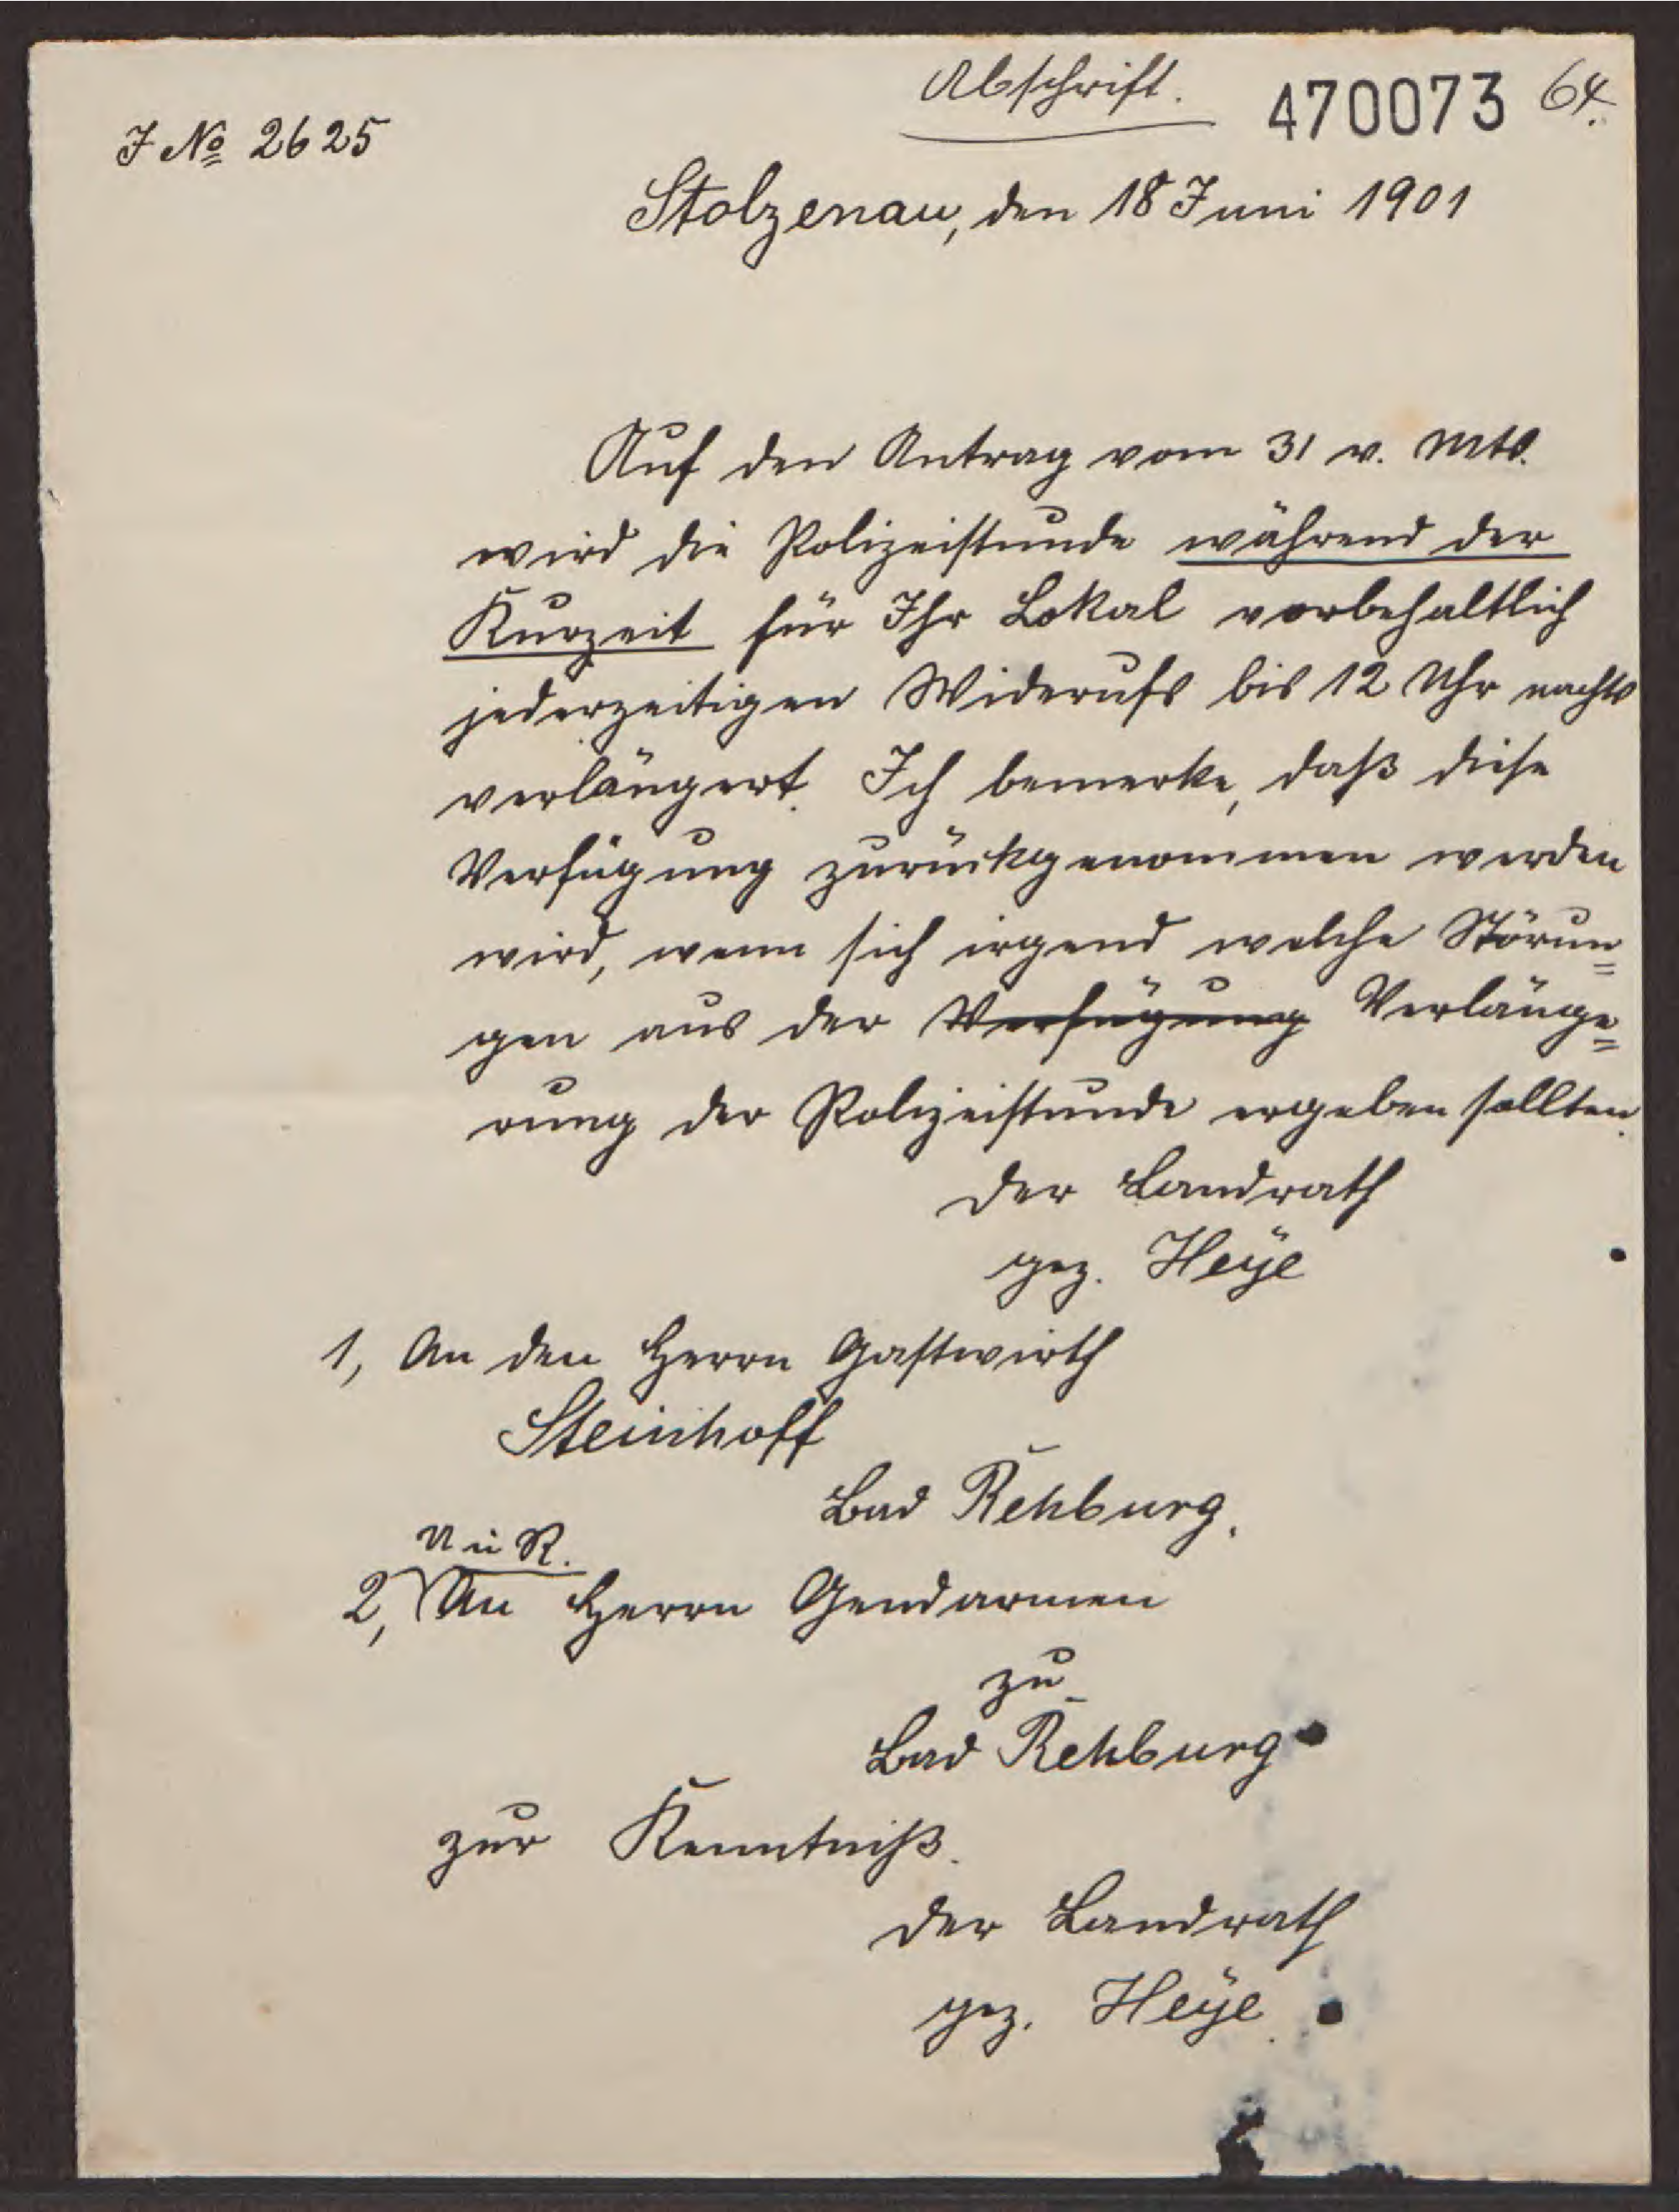 Abschrift. 470073 64.
J No 2625
Stolzenau, den 18 Juni 1901
Auf den Antrag vom 31 v. Mts.
wird die Polizeistunde während der
Kurzeit für Ihr Lokal vorbehaltlich
jederzeitigen Widerufs bis 12 Uhr nachts
verlängert. Ich bemerke, daß diese
Verfügung zurückgenommen werden
wird, wenn sich irgend welche Störun=
gen aus der Verfügung Verlänge=
rung der Polizeistunde ergeben sollten.
Der Landrath
gez. Heÿe
1, An den Herrn Gastwirth
Steinhoff
Bad Rehburg.
U u R.
2, An Herrn Gendarmen
zu
Bad Rehburg
zur Kenntniß.
Der Landrath
gez. Heÿe.